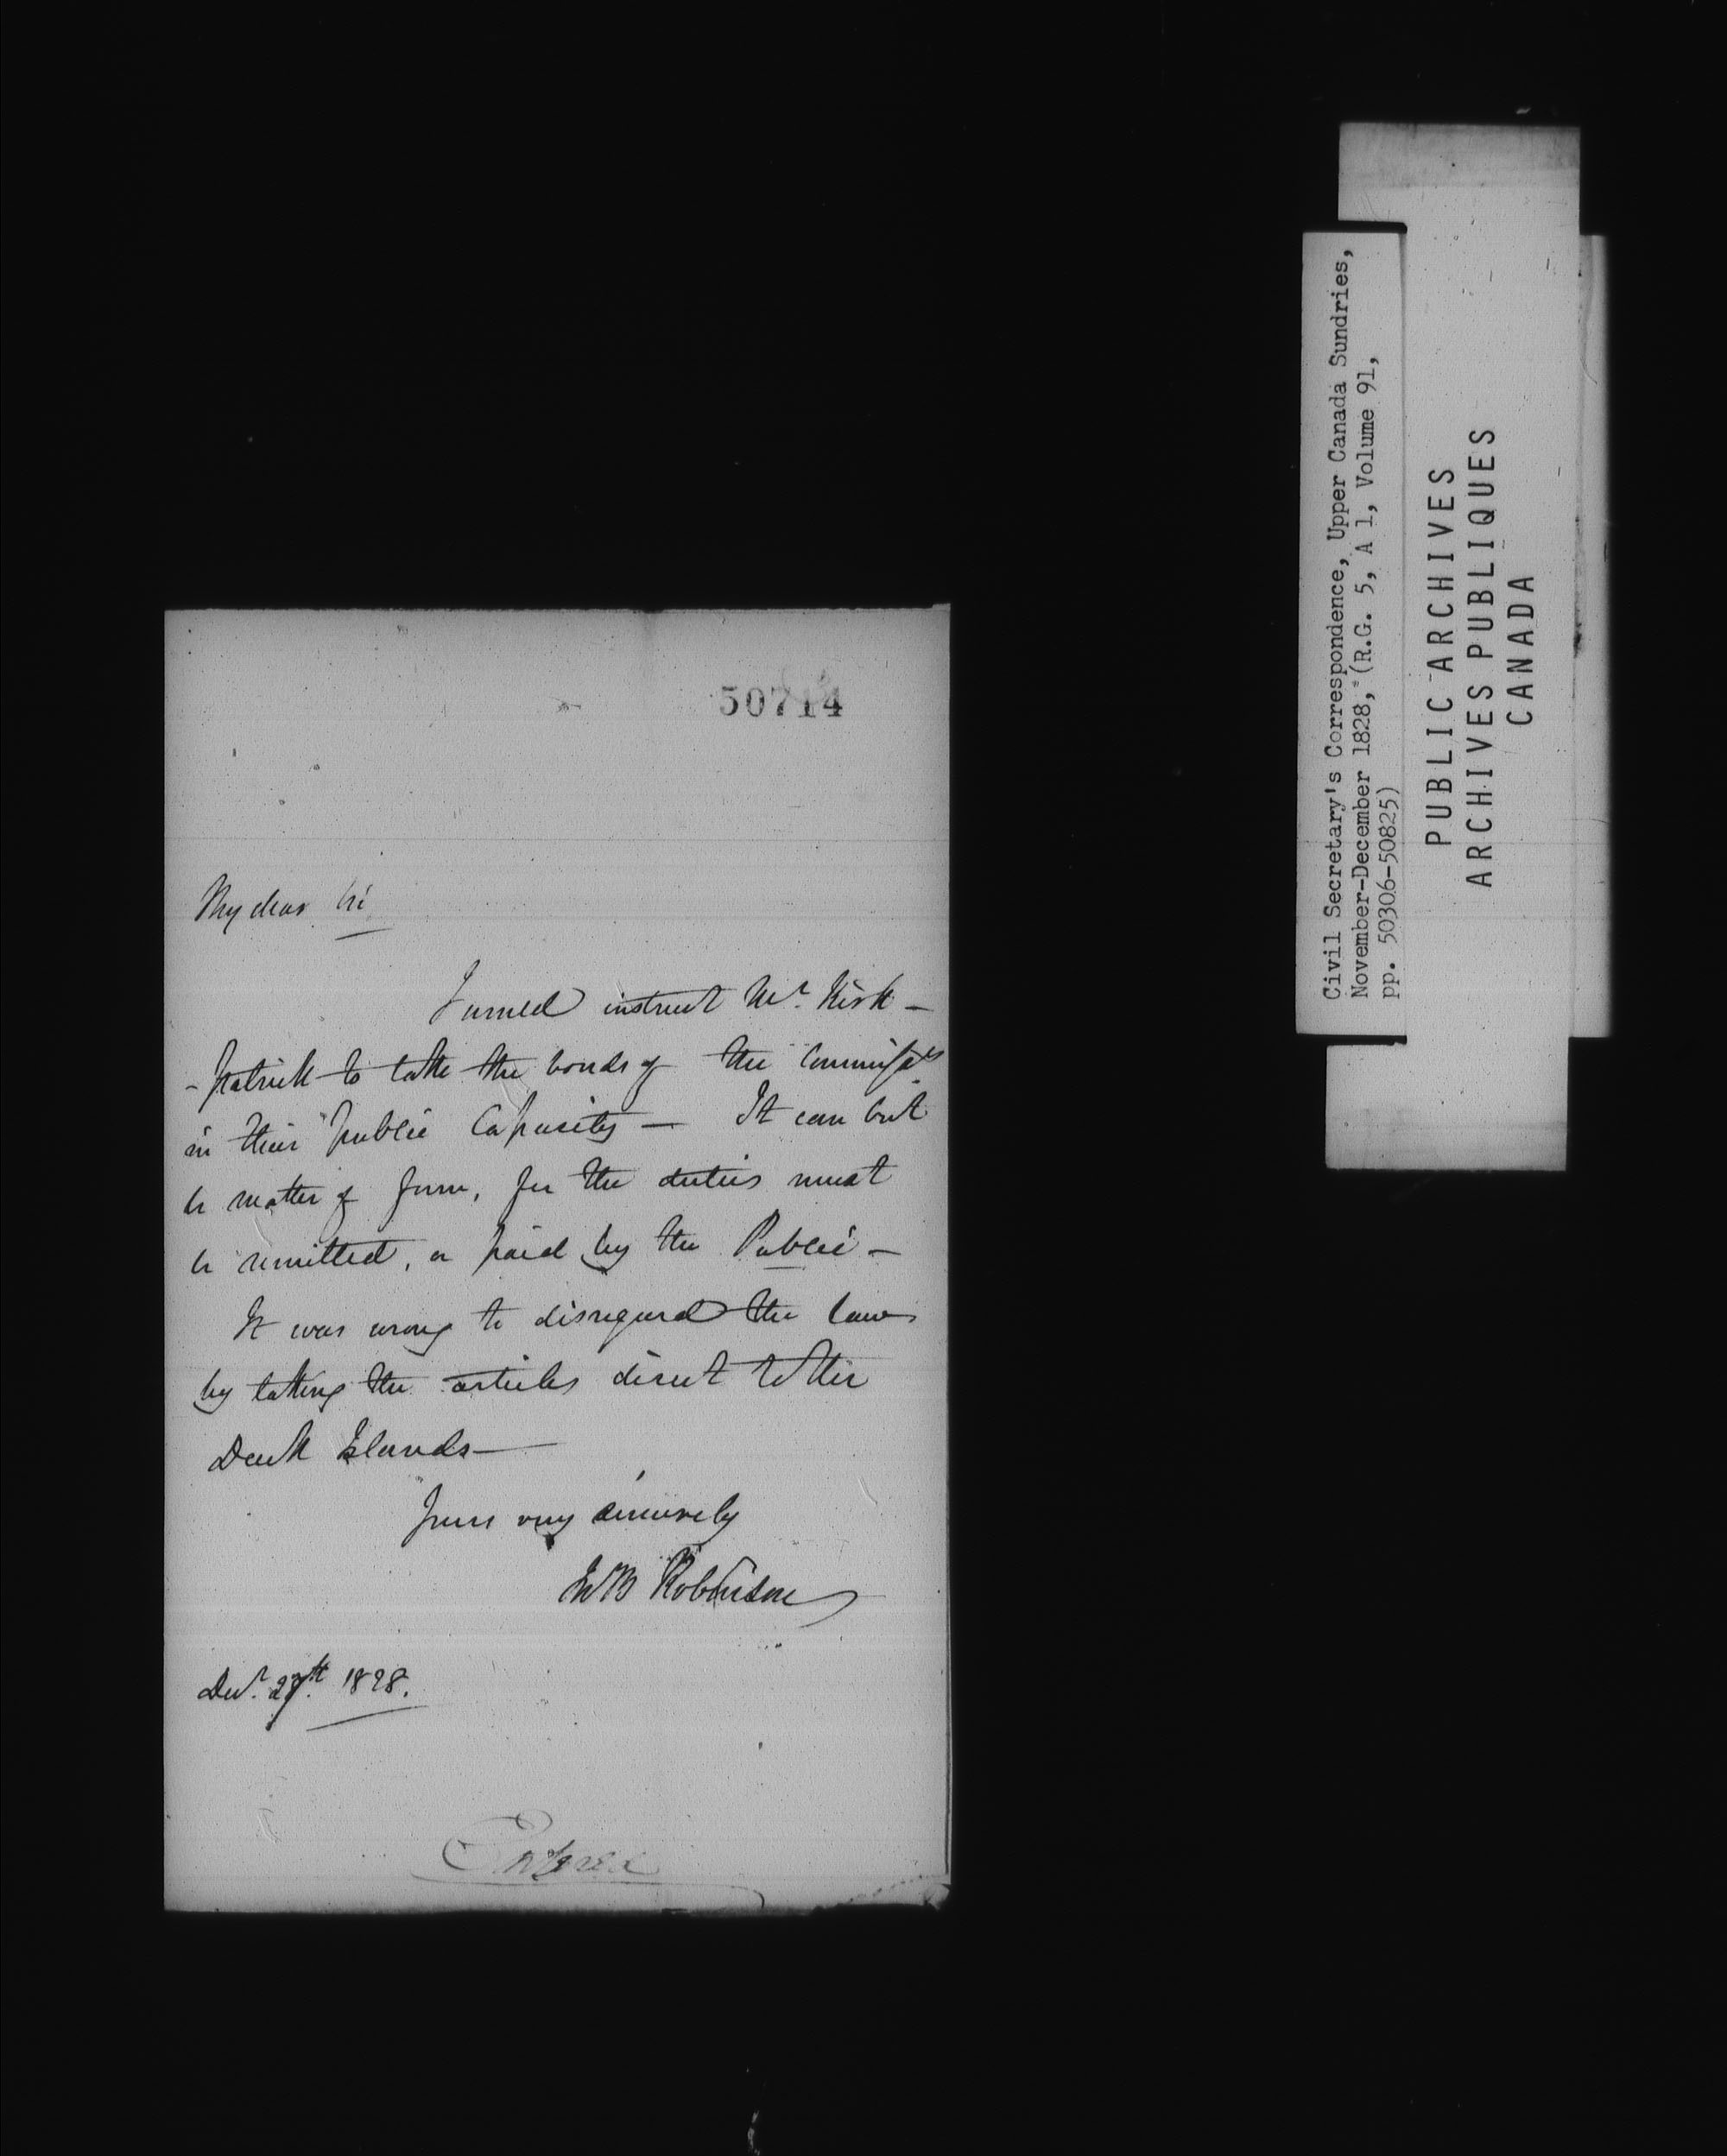 50714
My dear Sir
I would instruct Mr. Kirk -
- patrick to take the bonds of the Commissrs
in their public Capacity — It can but
be matter of form, for the duties must
be remitted, or paid by the Public —
It was wrong to disregard the law
by taking the articles direct to the
Duck Islands —
Yours very sincerely
Jno B Robinson
Decr. 27th. 1828.
Entered
Civil Secretary's Correspondence, Upper Canada Sundries,
November-December 1828, (R.G. 5, A 1, Volume 91,
pp. 50306-50825)
PUBLIC ARCHIVES
ARCHIVES PUBLIQUES
CANADA